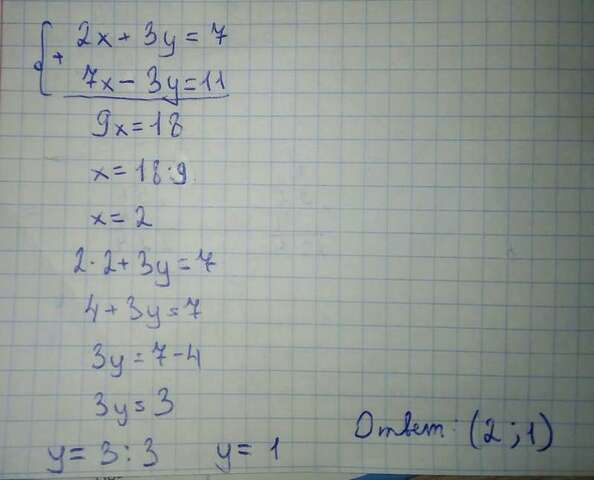 2x + 3y = 7
+
7x - 3y = 11
9x = 18
x = 18 : 9
x = 2
2 · 2 + 3y = 7
4 + 3y = 7
3y = 7 - 4
3y = 3
y = 3 : 3 y = 1
Ответ: (2 ; 1)